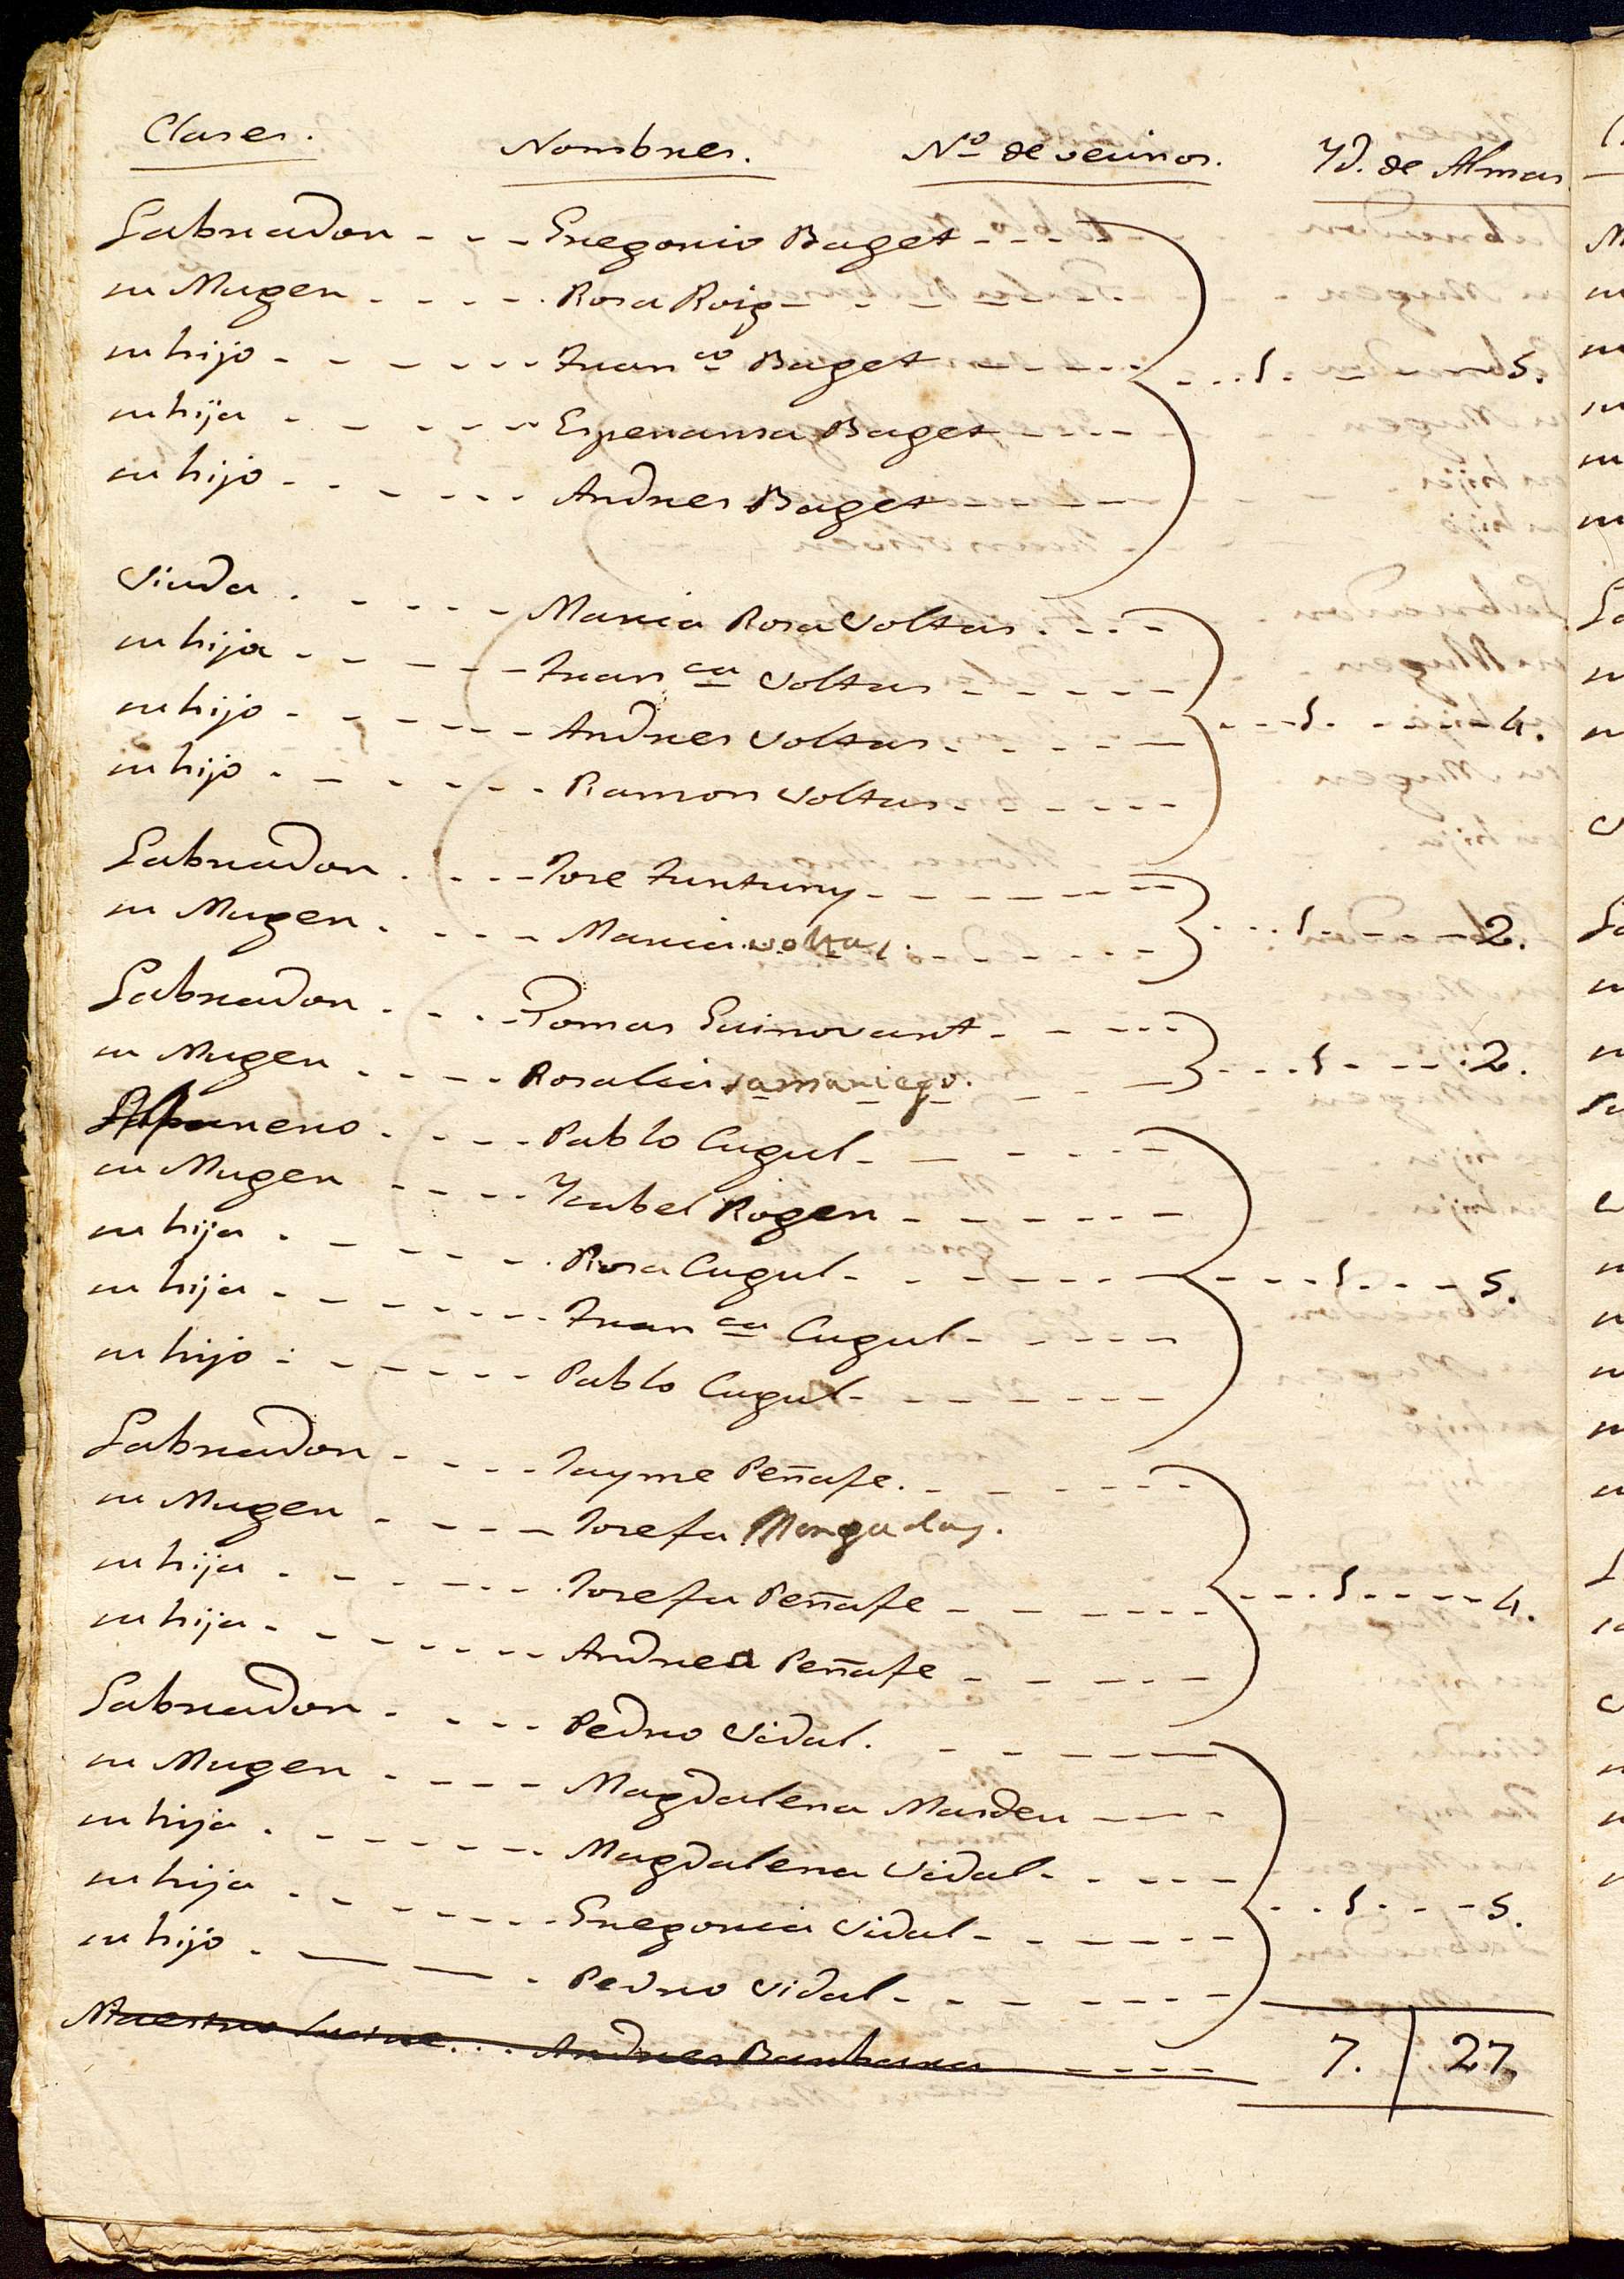 Clases. Nombres. Nº de vecinos. Yd. de Almas
Labrador - - - Gregorio Baget - - - -
su Muger - - - - Rosa Roig - - - - -
su hijo - - - - - - Franco Baget - - - - - 1 - - - 5.
su hija - - - - - - Esperansa Baget - - - -
su hijo - - - - - - Andres Baget - - - -
Viuda - - - - - Maria Rosa Voltas - - - -
su hija - - - - - Franca Voltas - - - - -
su hijo - - - - - - Andres Voltas - - - - - 1 - - - 4.
su hijo - - - - - - Ramon Voltas - - - - -
Labrador - - - - Jose Funtuny - - - - - -
su Muger - - - - Maria voltas - - - - - - 1 - - - 2.
Labrador - - - - Tomas Guinovart - - - - -
su Muger - - - - Rosalia samaniego. - - 1 - - - 2.
- - - - Pablo Cugul - - - - - -
su Muger - - - - Ysabel Roger - - - - - -
su hija - - - - - - Rosa Cugul - - - - - - 1 - - - 5.
su hija - - - - - - Franca Cugul - - - - -
su hijo - - - - - - Pablo Cugul - - - - - -
Labrador - - - - Jayme Peñafe. - - - - - -
su Muger - - - - Josefa Mongaday.
su hija - - - - - - Josefa Peñafe - - - - - - 1 - - - 4.
su hija - - - - - - Andrea Peñafe - - - - -
Labrador - - - - Pedro Vidal. - - - - -
su Muger - - - - Magdalena Masdeu - - - -
su hija - - - - - - Magdalena Vidal - - - - -
su hija - - - - - - Gregoria Vidal - - - - - - 1 - - - 5.
su hijo - - - Pedro Vidal - - - - - -
Maestro - - - Andres Barbara - - - - 7. 27